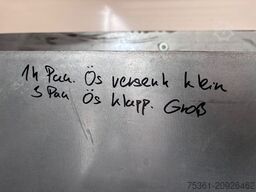 14 Pak. Ös versenk klein
3 Pak Ös klapp. Groß
75361-20926462